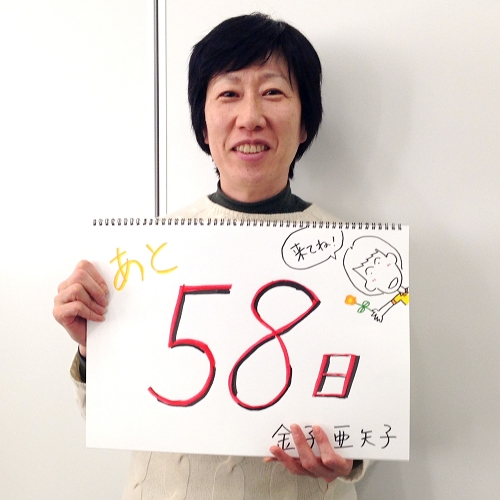 あと
来てね!
58日
金子亜矢子